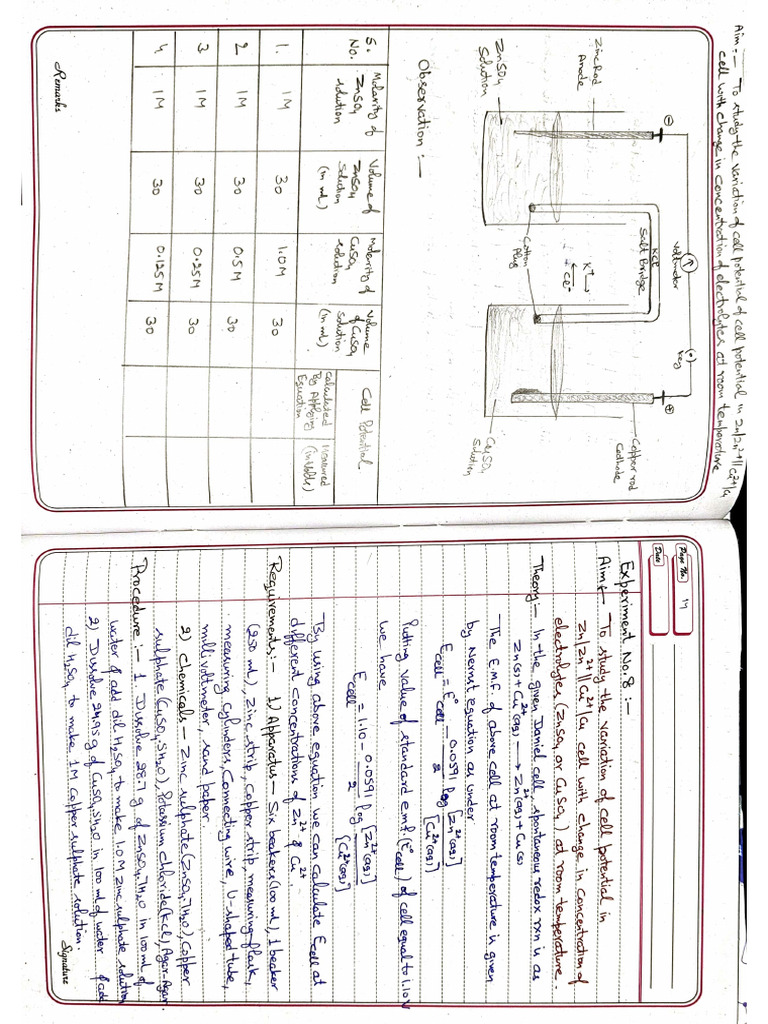 Aim :- To study the variation of cell potential of cell potential in Zn|Zn²⁺||Cu²⁺|Cu
cell with change in concentration of electrolytes at room temperature
Zinc Rod
Anode
ZnSO₄
Solution
⊖
Voltmeter
Key
⊕
KCl
Salt Bridge
K⁺
Cl⁻
Cotton
Plug
Copper rod
Cathode
CuSO₄
Solution
Observation :-
S. No. | Molarity of ZnSO₄ solution | Volume of ZnSO₄ solution (in mL) | Molarity of CuSO₄ solution | Volume of CuSO₄ solution (in mL) | Cell Potential
Calculated By Applying Equation | Measured (in Volts)
1. 1M 30 1.0M 30
2 1M 30 0.5M 30
3 1M 30 0.25M 30
4 1M 30 0.125M 30
Remarks
Page No. 19
Date
Experiment No. 8 :-
Aim :- To study the variation of cell potential in
Zn|Zn²⁺||Cu²⁺|Cu cell with change in concentration of
electrolytes (ZnSO₄ or CuSO₄) at room temperature.
Theory :- In the given Daniel cell, spontaneous redox rxn is as
Zn(s) + Cu²⁺(aq) → Zn²⁺(aq) + Cu(s)
The E.M.F. of above cell at room temperature is given
by Nernst equation as under
E cell = E° cell - 0.0591/2 log [Zn²⁺(aq)]/[Cu²⁺(aq)]
Putting value of standard e.m.f. (E° cell) of cell equal to 1.10V
we have
E cell = 1.10 - 0.0591/2 log [Zn²⁺(aq)]/[Cu²⁺(aq)]
By using above equation we can calculate Ecell at
different concentrations of Zn²⁺ & Cu²⁺.
Requirements :- 1) Apparatus - Six beakers (100 mL), 1 beaker
(250 mL), Zinc strip, copper strip, measuring flask,
measuring cylinders, Connecting wire, U-shaped tube,
millivoltmeter, sand paper.
2) Chemicals - Zinc sulphate (ZnSO₄.7H₂O), Copper
sulphate (CuSO₄.5H₂O), Potassium chloride (KCl), Agar-Agar.
Procedure :- 1. Dissolve 28.7 g of ZnSO₄.7H₂O in 100 ml of
water & add dil H₂SO₄ to make 1.0M zinc sulphate solution
2) Dissolve 24.95 g of CuSO₄.5H₂O in 100 ml of water & add
dil H₂SO₄ to make 1M copper sulphate solution.
Signature